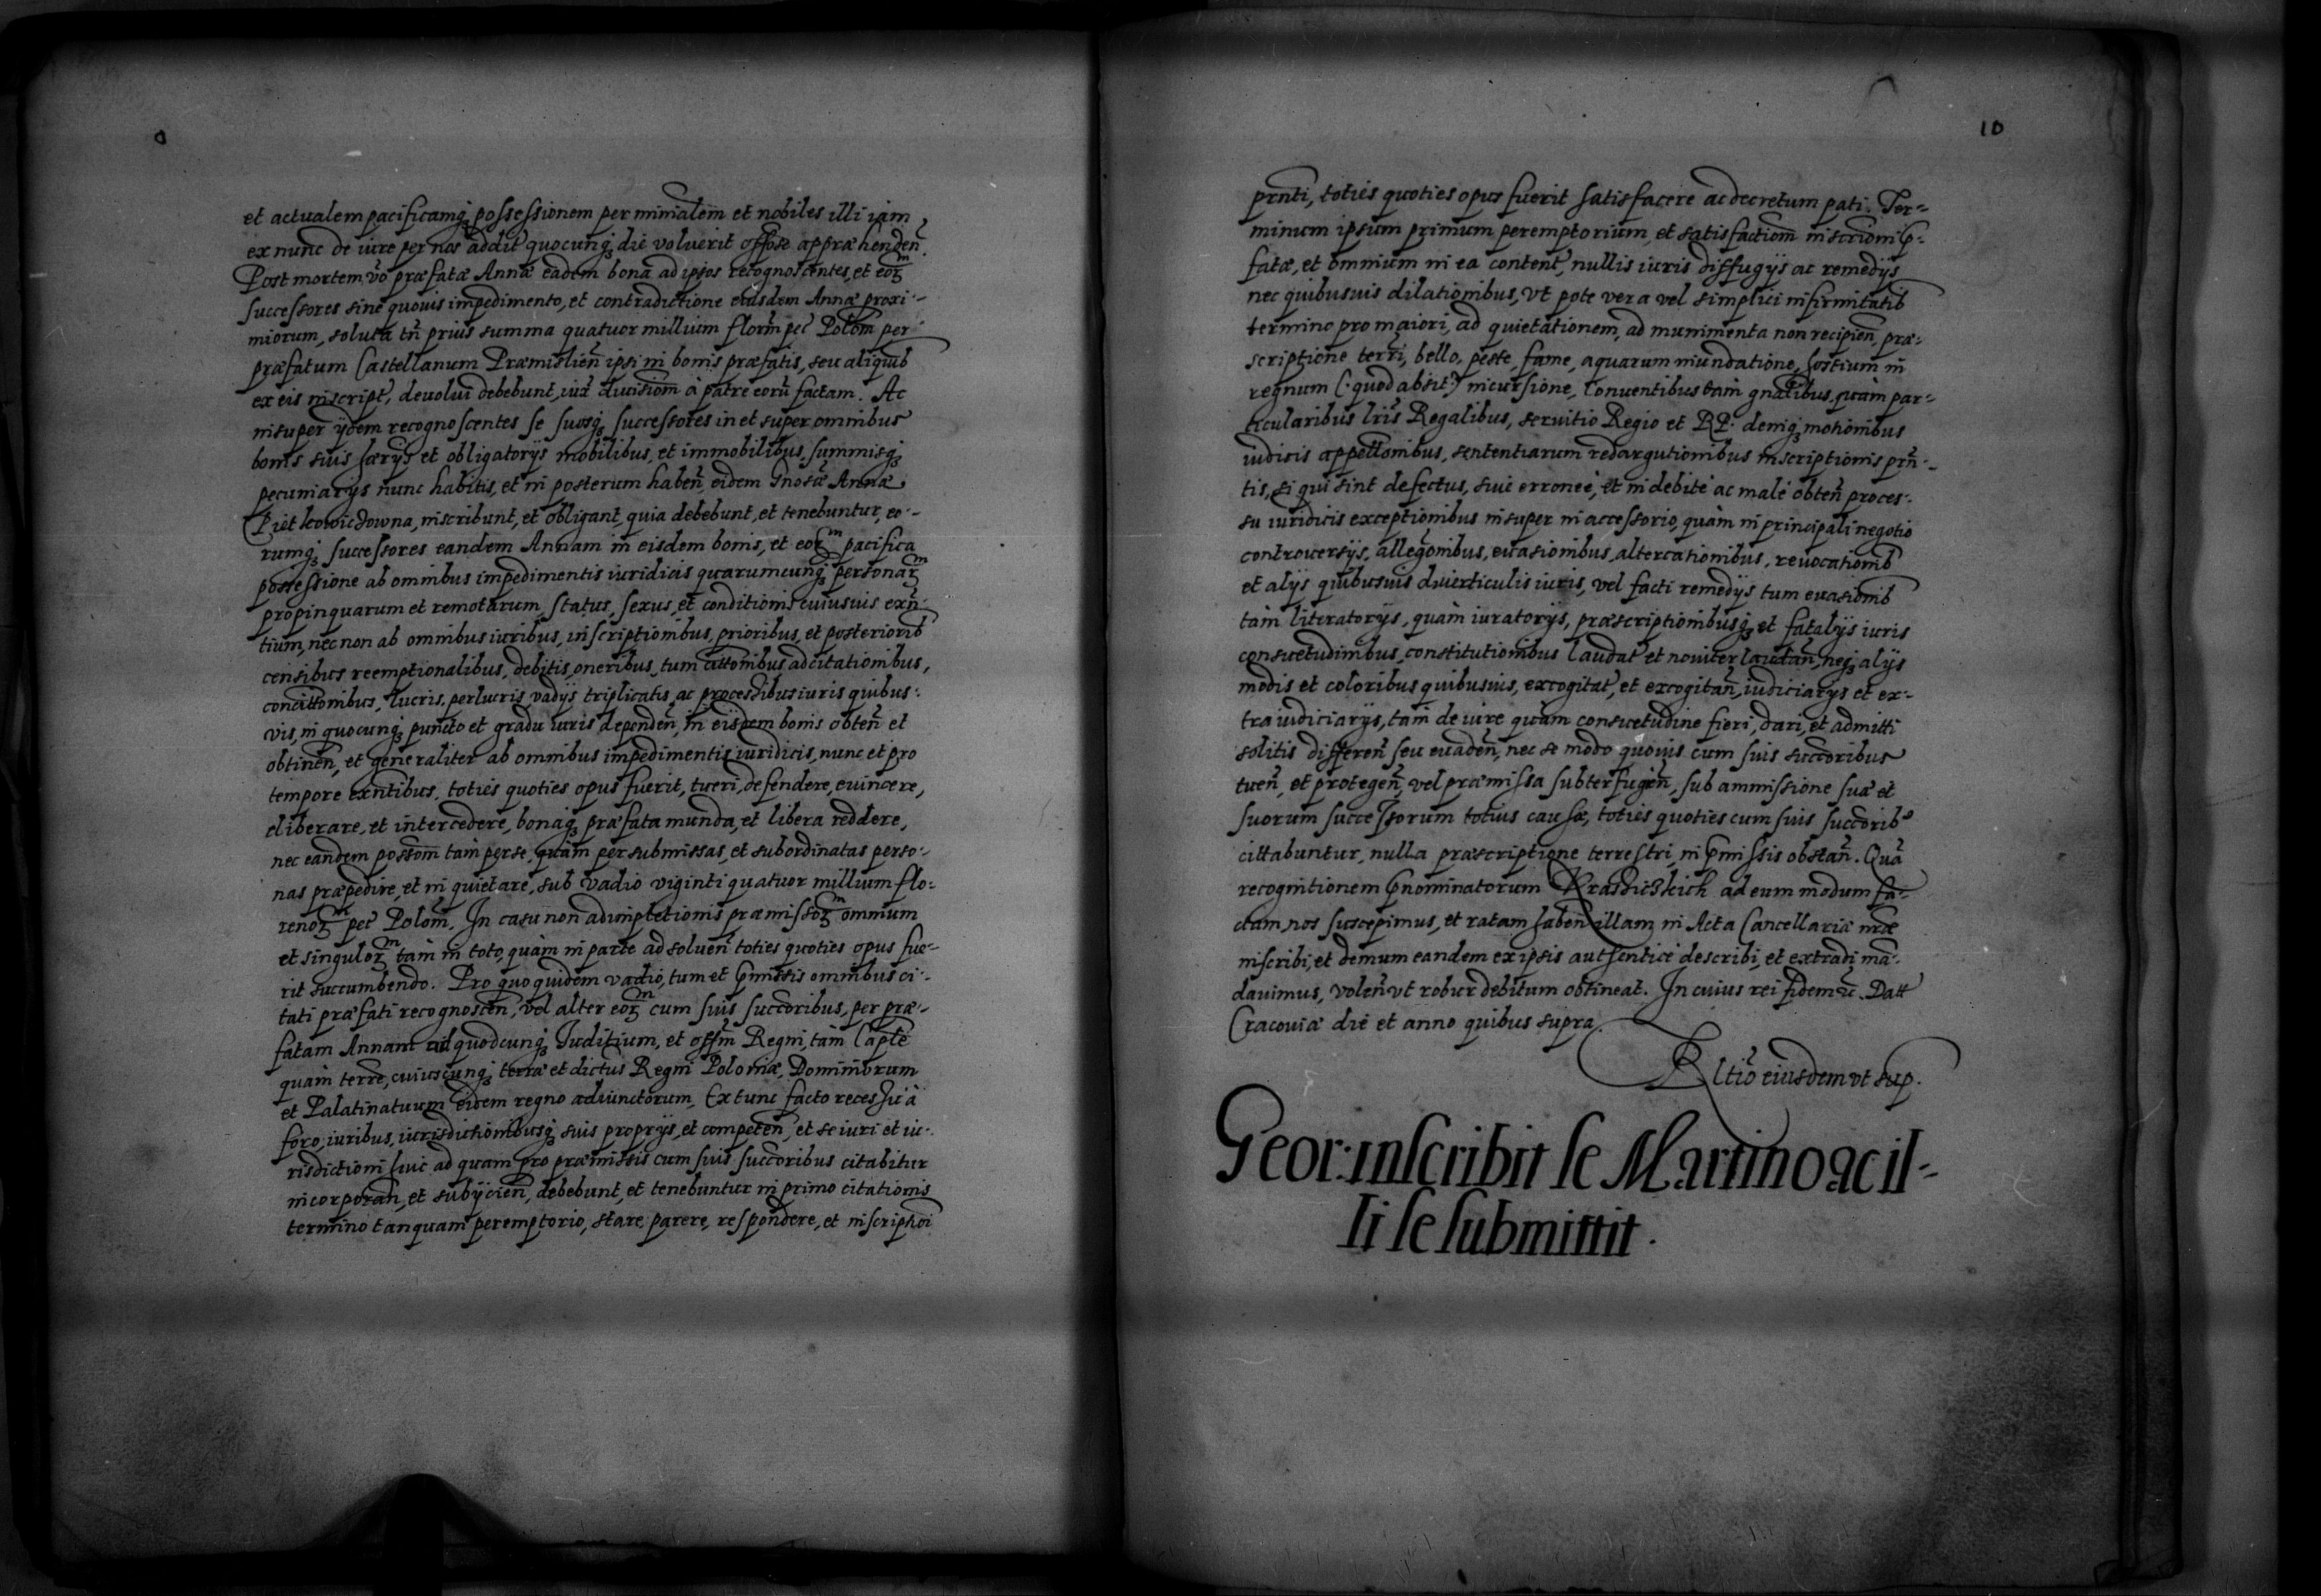 et actualem pacificamq₃ possessionem per minialem et nobiles illi iam
ex nunc de iure per nos addit quocunq₃ die voluerit offose appræhenden̄.
Post mortem vo præfatæ Annæ eadem bona ad ipsos recognoscentes, et eorꝫm
successores sine quouis impedimento, et contradictione eiusdem Annæ proxi-
miorum, soluta tn̄ prius summa quatuor millium florm pec Polom per
præfatum Castellanum Præmislien̄ ipsi in bonis præfatis, seu aliquib
ex eis inscript, deuolui debebunt, iux diuisiom à patre eorū factam. Ac
insuper ydem recognoscentes se suosq₃ successores in et super omnibus
bonis suis hærys et obligatorys mobilibus, et immobilibus, summisq₃
pecuniarys nunc habitis, et in posterum haben̄, eidem Gnosæ Annæ
inscribunt, et obligant, quia debebunt, et tenebuntur, eo-
rumq₃ successores eandem Annam in eisdem bonis, et eorꝫm pacifica
possessione ab omnibus impedimentis iuridicis quarumcunq₃ personarꝫm
propinquarum et remotarum, status, sexus, et conditionis cuiusuis exn̄-
tium, nec non ab omnibus iuribus, inscriptionibus, prioribus, et posteriorib
censibus reemptionalibus, debitis, oneribus, tum cittonibus adcitationibus,
concittonibus, lucris, perlucris, vadys triplicatis, ac processibus iuris quibus-
vis, in quocunq₃ puncto et gradu iuris dependen̄, in eisdem bonis obten̄ et
obtinen̄, et generaliter ab omnibus impedimentis iuridicis, nunc et pro
tempore exn̄tibus, toties quoties opus fuerit, tueri, defendere, euincere,
eliberare, et intercedere, bonaq₃ præfata munda, et libera reddere,
nec eandem possom tam per se, quàm per submissas, et subordinatas perso-
nas præpedire, et in quietare, sub vadio viginti quatuor millium flo-
renorꝫm pec Polom. In casu non adimpletionis præmissorꝫm omnium
et singulorꝫm tàm in toto, quàm in parte ad soluen̄ toties quoties opus fue-
rit succumbendo. Pro quo quidem vadio, tum et pmissis omnibus ci-
tati præfati recognoscen̄, vel alter eorꝫm cum suis succoribus, per præ-
fatam Annam ad quodcunq₃ Juditium, et offm Regni, tàm Caple
quàm terre, cuiuscunq₃ terræ et dictus Regni Poloniæ, Dominiorum
et Palatinatuum eidem regno adiunctorum, Ex tunc facto recessu à
foro, iuribus, iurisdictionibusq₃ suis proprys, et competen̄, et se iuri et iu-
risdictioni huic ad quam pro præmissis cum suis succoribus citabitur
incorporan̄, et subycien̄, debebunt, et tenebuntur in primo citationis
termino tanquam peremptorio, stare, parere, respondere, et inscriptioi
10
prn̄ti, toties quoties opus fuerit satisfacere ac decretum pati. Ter-
minum ipsum primum peremptorium, et satisfactiom inscrioni p-
fatæ, et omnium in ea content, nullis iuris diffugys ac remedys
nec quibusuis dilationibus, vt pote vera vel simplici infirmitatib
termino pro maiori, ad quietationem, ad munimenta non recipien̄, præ-
scriptione terrī, bello, peste, fame, aquarum inundatione, hostium in
regnum (: quod absit :) incursione, Conuentibus tam gnalibus, quàm par-
ticularibus lris Regalibus, seruitio Regio et RP. deniq₃ motionibus
iudicis appettonibus, sententiarum redargutionibus inscriptionis prn̄-
tis, si qui sint defectus, siue erroneè, et indebitè ac malè obten̄ proces-
su iuridicis exceptionibus insuper in accessorio, quàm in principali negotio
controuersys, allegonibus, euasionibus, altercationibus, reuocationib
et alys quibusuis diuerticulis iuris, vel facti remedys tum euasionib
tàm literatorys, quàm iuratorys, præscriptionibusq₃ et fatalys iuris
consuetudinibus, constitutionibus laudat et nouiter laudan̄, neq₃ alys
modis et coloribus quibusuis, excogitat, et excogitan̄, iudiciarys et ex-
tra iudiciarys, tàm de iure quàm consuetudine fieri, dari, et admitti
solitis differen̄ seu euaden̄, nec se modo quouis cum suis succoribus
tuen̄, et protegen̄, vel præmissa subterfugen̄, sub ammissione suæ et
suorum successorum totius causæ, toties quoties cum suis succorib9
cittabuntur, nulla præscriptione terrestri, in pmissis obstan̄. Quā
recognitionem pnominatorum Krasiczkich ad eum modum fa-
ctam, nos suscepimus, et ratam haben̄ illam in Acta Cancellariæ nræ
inscribi, et demum eandem ex ipsis autentice describi, et extradi mā-
dauimus, volen̄ vt robur debitum obtineat. In cuius rei fidem ꝛc. Datt
Cracouiæ die et anno quibus supra.
Rltio eiusdem vt sup.
Geor: inscribit se Martino ac il-
li se submittit.